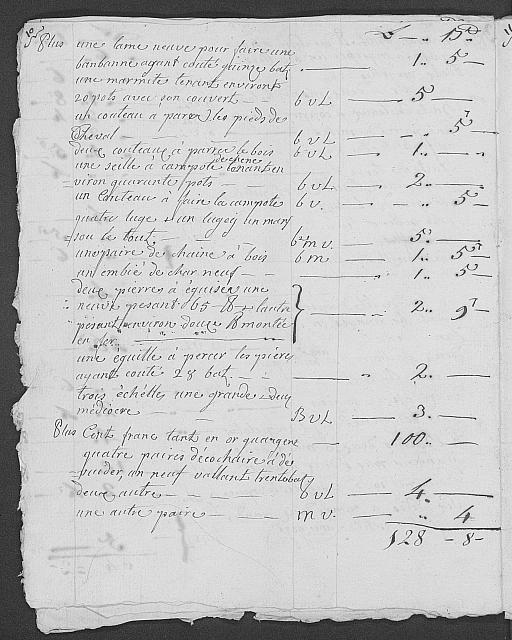 Plus une lame neuve pour faire une
banbanne ayant couté quinze batz 1.. 5
une marmite tenant environt
20 pots avec son couvert b v L 5
un couteau a parer les pieds de
Cheval b v L 5
deux couteaux a parrer le bois b v L 1..
une seille à campote de chene tenant en
viron quarante pots b v L 2..
un couteau à faire la campote b v. 5
quatre luge & un lugey un man
sou le tout b m v. 5.
une paire de chaine à bois b m 1. 5
un embié de char neuf 1. 5
deux pierres à équiser une
neuve pesant 65 lb & l'autre 2.. 9
pesant environ douze lb montée
en fer
une équille à percer les pierre
ayant couté 28 batz 2..
trois échelles une grande & deux
médiocre B v L 3.
Plus Cent franc tant en or qu'argent 100..
quatre paires décochaire a dé
un neuf vallant trente batz
deux autre b v L 4.
une autre paire m v. .. 4
128 - 8 -